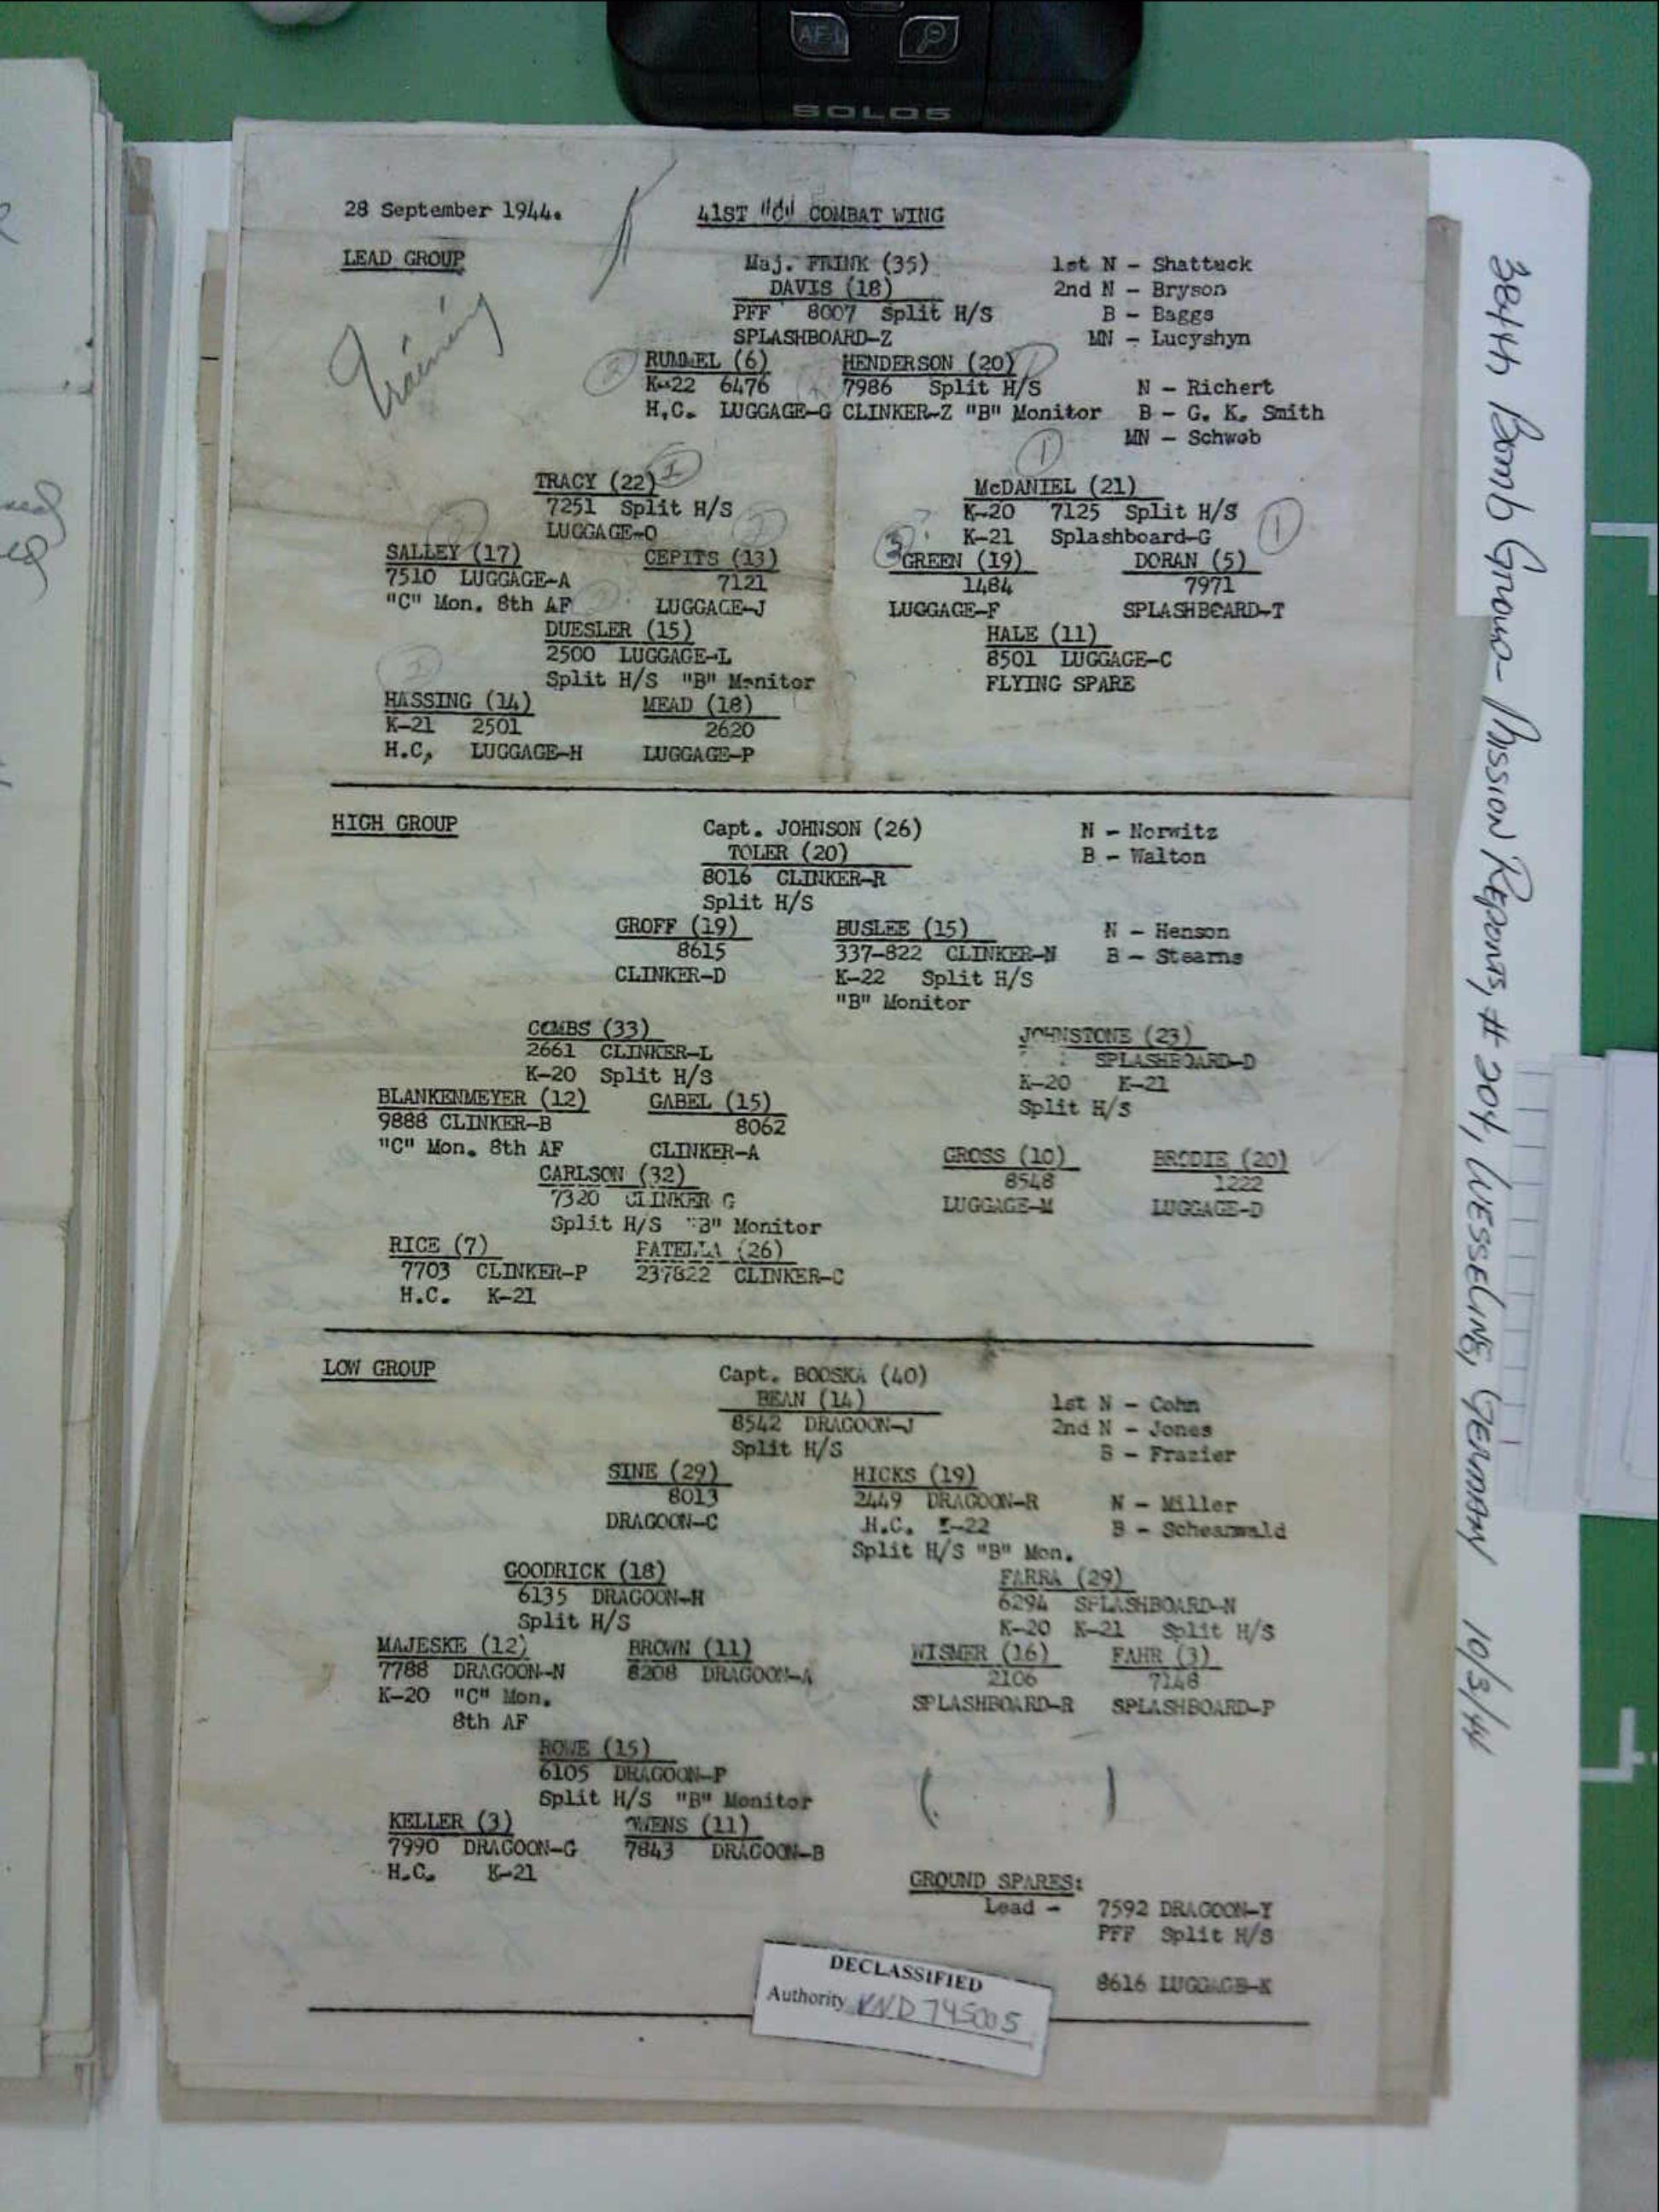 AF-L
SOLO5
28 September 1944.
41ST "C" COMBAT WING
LEAD GROUP
Training
Maj. FRINK (35)
DAVIS (18)
PFF 8007 Split H/S
SPLASHBOARD-Z
1st N - Shattuck
2nd N - Bryson
B - Baggs
MN - Lucyshyn
RUMMEL (6)
K-22 6476
H.C. LUGGAGE-G
HENDERSON (20)
7986 Split H/S
CLINKER-Z "B" Monitor
N - Richert
B - G. K. Smith
MN - Schwob
TRACY (22)
7251 Split H/S
LUGGAGE-O
McDANIEL (21)
K-20 7125 Split H/S
K-21 Splashboard-G
SALLEY (17)
7510 LUGGAGE-A
"C" Mon. 8th AF
CEPITS (13)
7121
LUGGAGE-J
GREEN (19)
1484
LUGGAGE-F
DORAN (5)
7971
SPLASHBOARD-T
DUESLER (15)
2500 LUGGAGE-L
Split H/S "B" Monitor
HALE (11)
8501 LUGGAGE-C
FLYING SPARE
HASSING (14)
K-21 2501
H.C, LUGGAGE-H
MEAD (18)
2620
LUGGAGE-P
HIGH GROUP
Capt. JOHNSON (26)
TOLER (20)
8016 CLINKER-R
Split H/S
N - Norwitz
B - Walton
GROFF (19)
8615
CLINKER-D
BUSLEE (15)
337-822 CLINKER-N
K-22 Split H/S
"B" Monitor
N - Henson
B - Stearns
COMBS (33)
2661 CLINKER-L
K-20 Split H/S
JOHNSTONE (23)
SPLASHBOARD-D
K-20 K-21
Split H/S
BLANKENMEYER (12)
9888 CLINKER-B
"C" Mon. 8th AF
GABEL (15)
8062
CLINKER-A
GROSS (10)
8548
LUGGAGE-M
BRODIE (20)
1222
LUGGAGE-D
CARLSON (32)
7320 CLINKER G
Split H/S "B" Monitor
RICE (7)
7703 CLINKER-P
H.C. K-21
FATELLA (26)
237822 CLINKER-C
LOW GROUP
Capt. BOOSKA (40)
BEAN (14)
8542 DRAGOON-J
Split H/S
1st N - Cohn
2nd N - Jones
B - Frazier
SINE (29)
8013
DRAGOON-C
HICKS (19)
2449 DRAGOON-R
H.C. K-22
Split H/S "B" Mon.
N - Miller
B - Schearwald
GOODRICK (18)
6135 DRAGOON-H
Split H/S
FARRA (29)
6294 SPLASHBOARD-N
K-20 K-21 Split H/S
MAJESKE (12)
7788 DRAGOON-N
K-20 "C" Mon.
8th AF
BROWN (11)
8208 DRAGOON-A
WISMER (16)
2106
SPLASHBOARD-R
FAHR (3)
7148
SPLASHBOARD-P
ROWE (15)
6105 DRAGOON-P
Split H/S "B" Monitor
KELLER (3)
7990 DRAGOON-G
H.C. K-21
OWENS (11)
7843 DRAGOON-B
GROUND SPARES:
Lead - 7592 DRAGOON-Y
PFF Split H/S
8616 LUGGAGE-K
DECLASSIFIED
Authority NND 745005
384th Bomb Group- Mission Reports, # 204, WESSELING, GERMAN 10/3/44